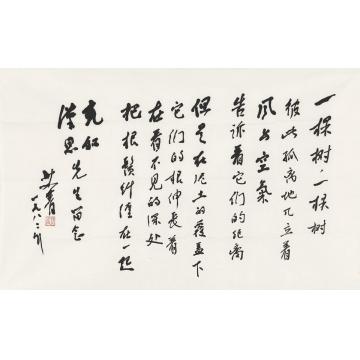 一棵树,一棵树
彼此孤离地兀立着
风与空氣
告诉着它们的距离
但是在泥土的覆盖下
它们的根伸长着
在看不见的深处
把根鬚纠缠在一起
充和
漢思先生留念
艾青
一九八二年